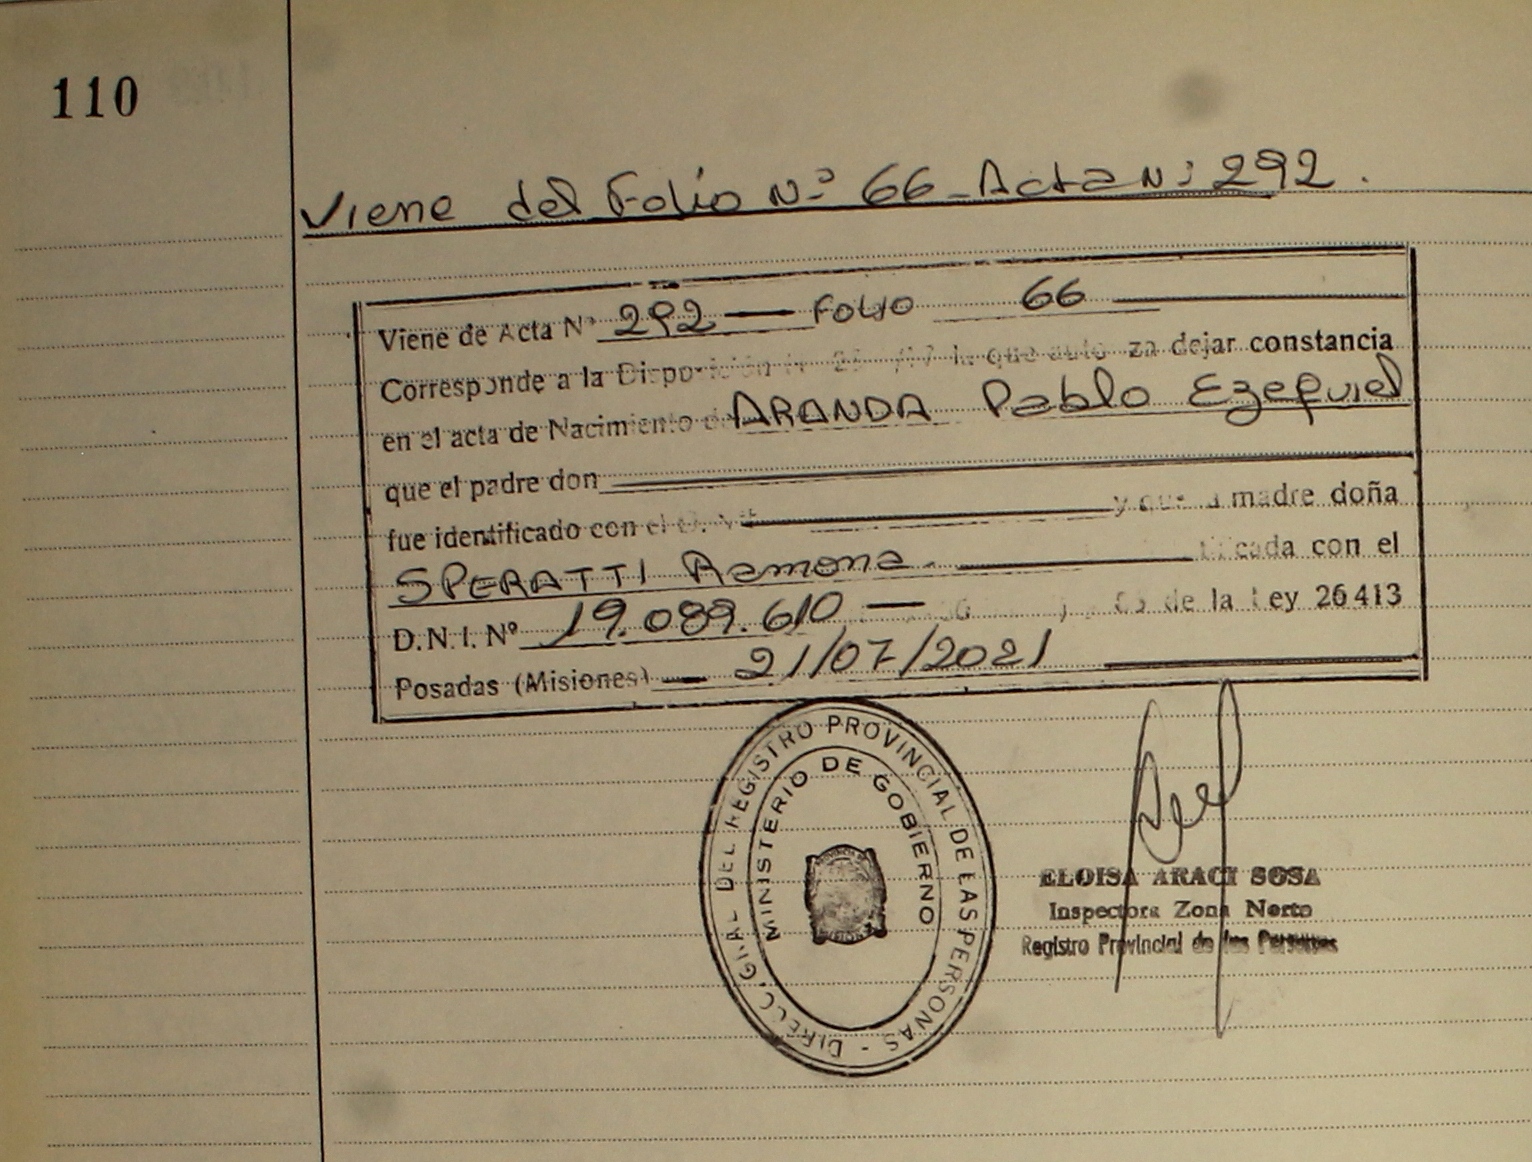 110
Viene del Folio Nº 66 - Acta Nº 292.
Viene de Acta Nº 292 — FOLIO 66
Corresponde a la Disposición la que dejar constancia
en el acta de Nacimiento de ARANDA Pablo Ezequiel
que el padre don
fue identificado con el y que la madre doña
SPERATTI Ramona. con el
D.N.I. Nº 19.089.610 — de la Ley 26413
Posadas (Misiones) — 21/07/2021
DIRECC. GRAL DEL REGISTRO PROVINCIAL DE LAS PERSONAS -
MINISTERIO DE GOBIERNO
ELOISA ARACI SOSA
Inspectora Zona Norte
Registro Provincial de las Personas